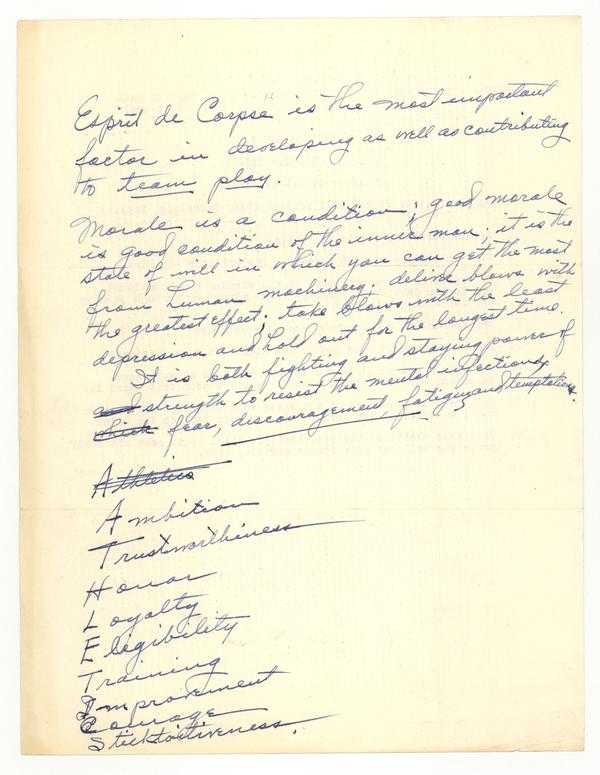 Esprit de Corpse is the most important
factor in developing as well as contributing
to team play.
Morale is a condition; good morale
is good condition of the inner man; it is the
state of will in which you can get the most
from human machinery; deliver blows with
the greatest effect; take blows with the least
depression and hold out for the longest time.
It is both fighting and staying power &
and strength to resist the mental infections
which fear, discouragement, fatigue, and temptations.
Athletics
Ambition
Trustworthiness
Honor
Loyalty
Eligibility
Training
Improvement
Courage
Sticktoitiveness.